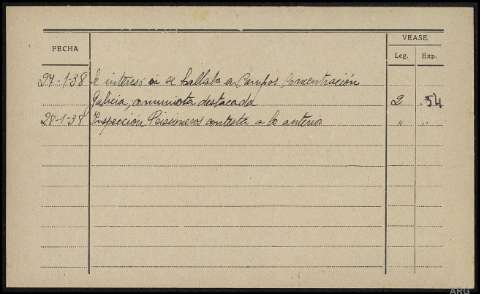 VEASE.
FECHA
Leg. Exp.
27-1-38 se interesa si se hallaba a Campos Concentración
Galicia, comunista destacada 2 54
28-1-38 Inspección Prisioneros contesta a lo anterior
" "
ARG